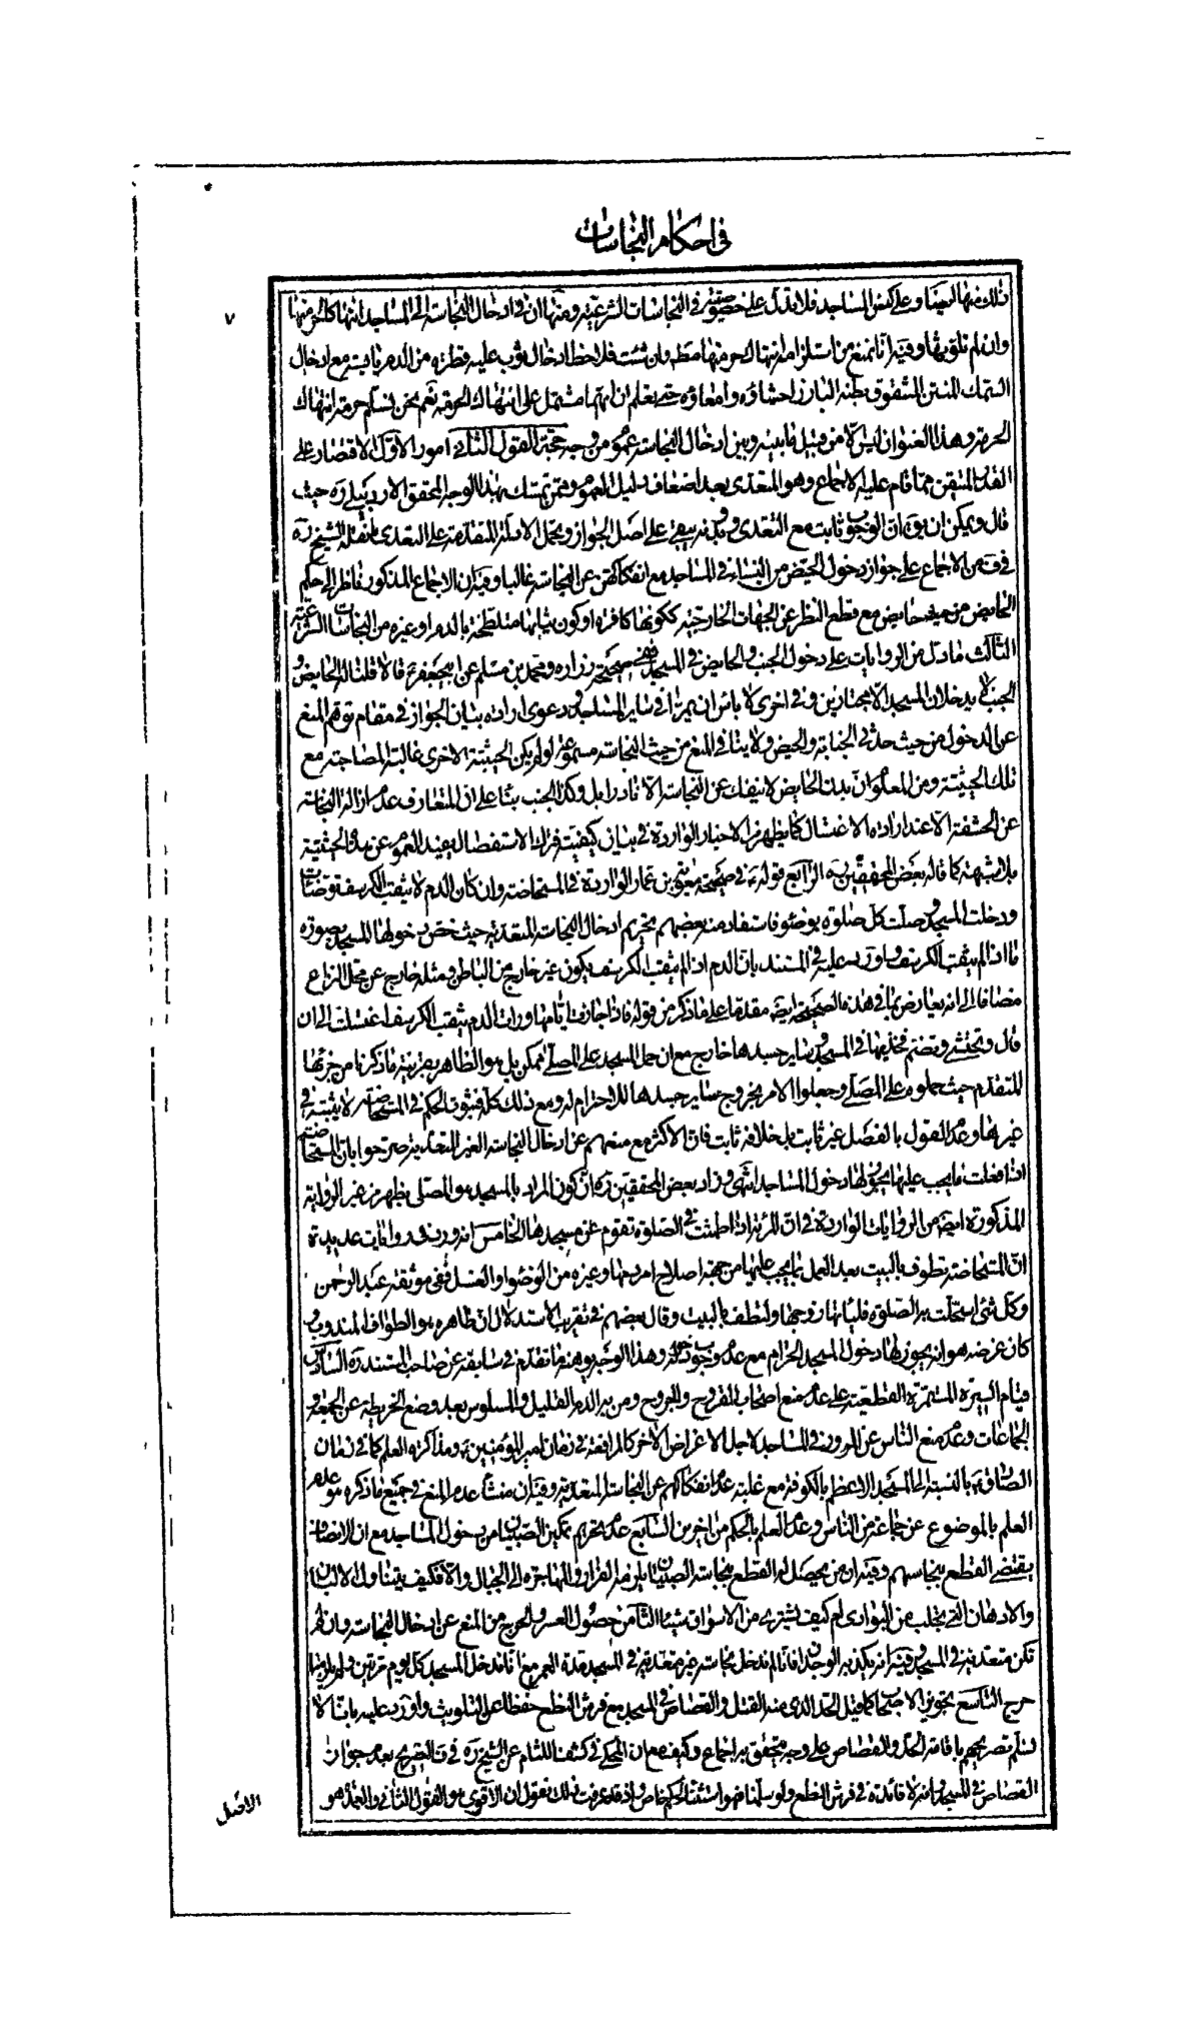 في احكام النجاسات
٧
ذلك منها ايضا وعلى كنس المساجد فلا تدل على خصوص في النجاسات الشرعية ومنها ان في ادخال النجاسة الى المساجد انتهاكا لحرمتها
وان لم تلوثها وفيه انا نمنع من استلزامه انتهاك حرمتها مطم وان شئت فلاحظ ادخال ثوب عليه قطرة من الدم يابسة مع ادخال
السمك المنتن المشقوق بطنه البارز احشاؤه وامعاؤه حتى تعلم ان ايهما مشتمل على انتهاك الحرمة نعم نحن نسلم حرمة انتهاك
الحرمة وهذا العنوان ليس الا من قبيل ما بينه وبين ادخال النجاسة عموم من وجه حجة القول الثاني امور الاول الاقتصار على
القدر المتيقن مما قام عليه الاجماع وهو المتعدى بعد اضعاف دليل العموم وممن تمسك بهذا الوجه المحقق الاردبيلي ره حيث
قال ويمكن ان يق ان الوجوب ثابت مع التعدى وبدونه يبقى على اصل الجواز وتحمل الادلة المتقدمة على التعدى لما نقله الشيخ ره
في ف من الاجماع على جواز دخول الحيض من النساء في المساجد مع عدم انفكاكهن عن النجاسة غالبا وفيه ان الاجماع المذكور ناظر الى حكم
الحايض من حيث هي حايض مع قطع النظر عن الجهات الخارجية ككونها كافرة او كون ثيابها متلطخة بالدم او غيره من النجاسات الشرعية
الثالث ما دل من الروايات على دخول الجنب والحايض في المسجد ففي صحيحة زرارة ومحمد بن مسلم عن ابيجعفر ع قالا قلنا له الحايض و
الجنب يدخلان المسجد ام لا قال لا يدخلان المسجد الا مجتازين وفي اخرى لا باس ان يمرا في ساير المساجد ودعوى ارادة بيان الجواز في مقام توهم المنع
عن الدخول من حيث حدثي الجنابة والحيض ولا ينافى المنع من حيث النجاسة مسموعة لو لم يكن الحيثية الاخرى غالبة المصاحبة مع
تلك الحيثية ومن المعلوم ان بدن الحايض لا ينفك عن النجاسة الا نادرا بل وكذا الجنب بناء على ان المتعارف عدم ازالة النجاسة
عن الحشفة الا عند ارادة الاغتسال كما يظهر من الاخبار الواردة في بيان كيفيته فترك الاستفصال يفيد العموم عن هذه الحيثية
بلا شبهة كما قاله بعض المحققين ره الرابع قوله ع في صحيحة معوية بن عمار الواردة في المستحاضة وان كان الدم لا يثقب الكرسف توضأت
ودخلت المسجد وصلت كل صلوة بوضوء فاستفاد منه بعضهم تحريم ادخال النجاسة المتعدية حيث خص دخولها المسجد بصورة
ما اذا لم يثقب الكرسف واورد عليه في المستند بان الدم اذا لم يثقب الكرسف يكون غير خارج من الباطن ومثله خارج عن محل النزاع
مضافا الى انه يعارض بما في هذه الصحيحة ايضا مقدما على ما ذكر من قوله فاذا جازت ايامها ورات الدم يثقب الكرسف اغتسلت الى ان
قال وتحتشي وتضم فخذيها في المسجد وساير جسدها خارج مع ان حمل المسجد على المصلى ممكن بل هو الظاهر بقرينة ما ذكرنا من جزئها
المتقدم حيث حملوه على المصلى وجعلوا الامر بخروج ساير جسدها للاحترام له ومع ذلك كله فثبوت الحكم في المستحاضة لا يثبته في
غيرها وعدم القول بالفصل غير ثابت بل خلافه ثابت فان الاكثر مع منعهم عن ادخال النجاسة الغير المتعدية صرحوا بان المستحاضة
اذا فعلت ما يجب عليها يجوز لها دخول المساجد انتهى وزاد بعض المحققين ره ان كون المراد بالمسجد هو المصلى يظهر من غير الرواية
المذكورة ايضا من الروايات الواردة في ان المرئة اذا طمثت في الصلوة تقوم عن مسجدها الخامس انه ورد في روايات عديدة
ان المستحاضة تطوف بالبيت بعد العمل بما يجب عليها من جهة اصلاح امر دمها وغيره من الوضوء او الغسل ففي موثقة عبد الرحمن
وكل شئ استحلت به الصلوة فلياتها زوجها ولتطف بالبيت وقال بعضهم في تقريب الاستدلال ان ظاهره هو الطواف المندوب و
كان غرضه هو انه يجوز لها دخول المسجد الحرام مع عدم وجوب دخوله وهذا الوجه يوهنه ما تقدم في سابقه عن صاحب المستند ره السادس
قيام السيرة المستمرة القطعية على عدم منع اصحاب القروح والجروح ومن به الدم القليل والمسلوس بعد وضع الخريطة عن الجمعة و
الجماعات وعدم منع الناس عن المرور في المساجد لاجل الاغراض الاخر كالمرافعة في زمان امير المؤمنين ع ومذاكرة العلم كما في زمان
الصادق ع بالنسبة الى المسجد الاعظم بالكوفة مع غلبة عدم انفكاكهم عن النجاسة المتعدية وفيه ان منشأ عدم المنع في جميع ما ذكره هو عدم
العلم بالموضوع عن جماعة من الناس وعدم العلم بالحكم من اخرين السابع عدم تحريم تمكين الصبيان من دخول المساجد مع ان الانصاف
يقتضى القطع بنجاستهم وفيه ان من يحصل له القطع بنجاسة الصبيان يلزمه الفرار والمهاجرة الى الجبال والا فكيف يتناول الالبان
والادهان التي يجلب من البوادى ام كيف يشترى من الاسواق شيئا الثامن حصول العسر والحرج من المنع عن ادخال النجاسة وان لم
تكن متعدية في المسجد وفيه انه يكذبه الوجدان فانا لم ندخل نجاسة غير متعدية في المسجد مدة العمر مع انا ندخل المسجد كل يوم مرتين ولم يلزمنا
حرج التاسع تجويز الاصحاب كما قيل الحد الذى منه القتل والقصاص في المسجد مع فرش النطع حفظا عن التلويث واورد عليه بانا لا
نسلم تصريحهم باقامة الحد والقصاص على وجه يتحقق به اجماع وكيف مع ان المحكى في كشف اللثام عن الشيخ ره في ط التصريح بعدم جواز
القصاص في المسجد وانه لا فائدة في فرش النطع ولو سلمنا فهو استثناء لحكم خاص واذ قد عرفت ذلك نقول ان الاقوى هو القول الثاني والعمدة هو
الاصل